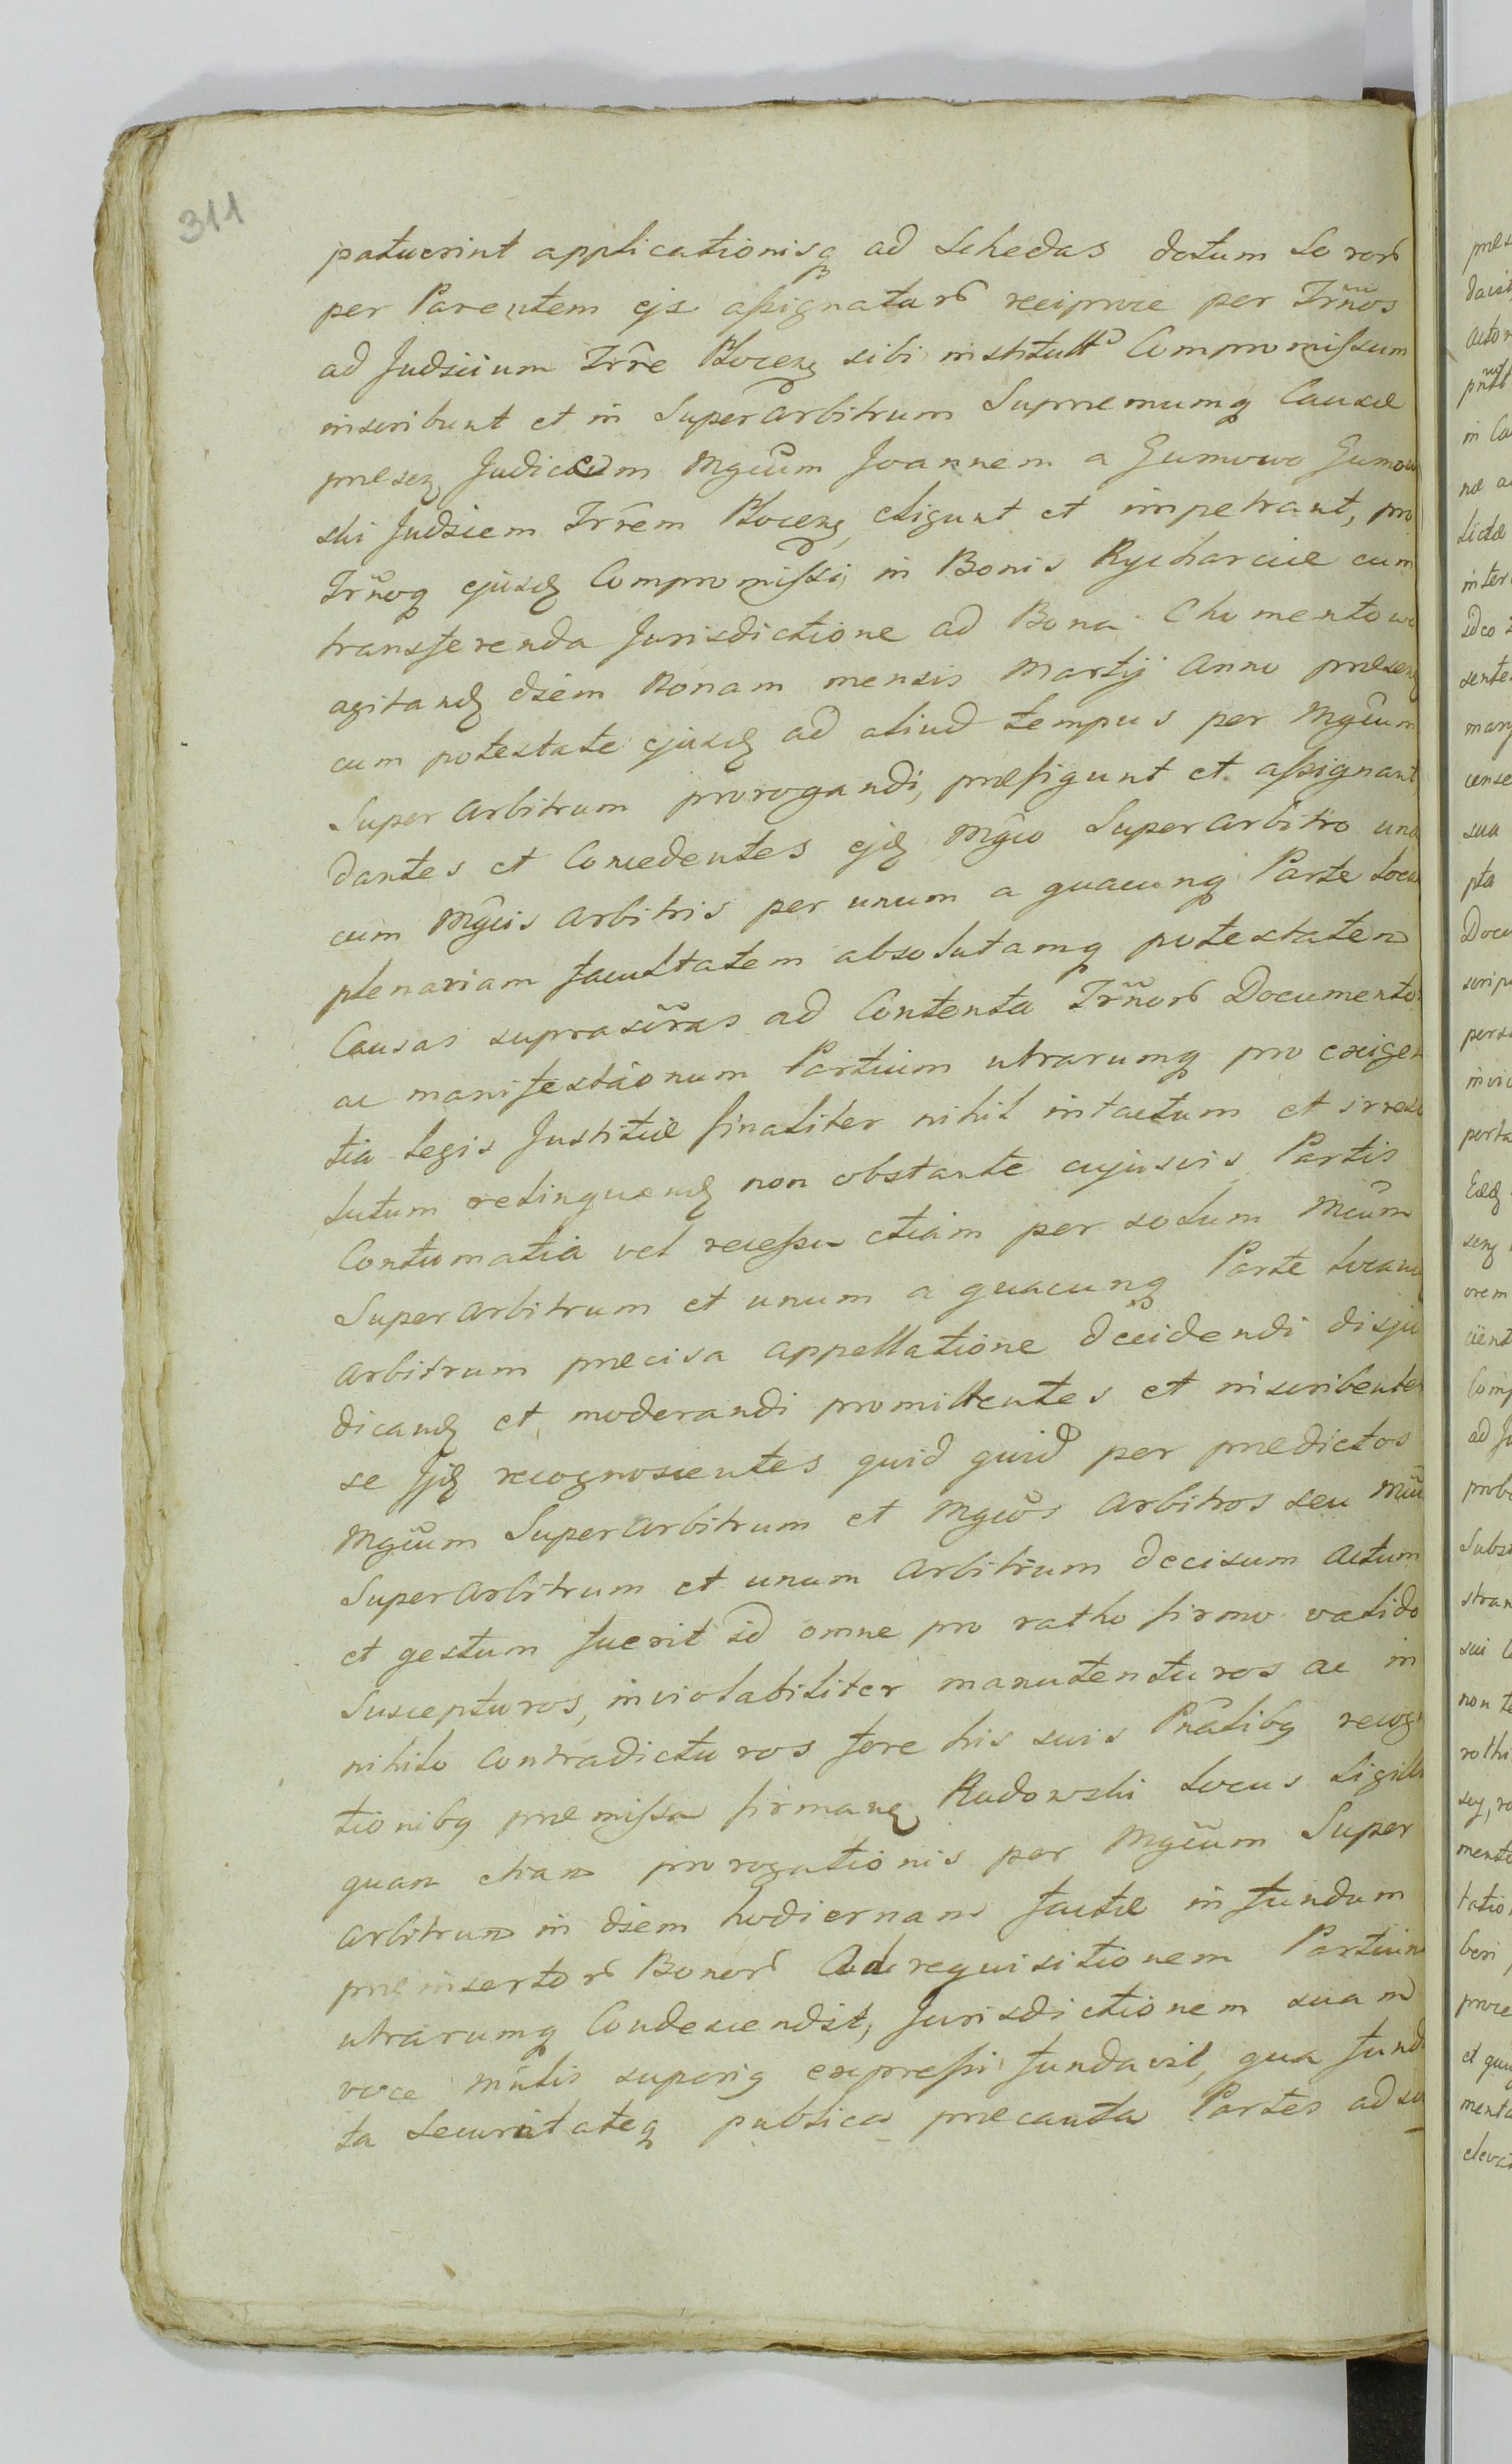 311
patuerint applicationisq ad Schedas dotum Soror
per Parentem ejs assignatar reciproce per Trños
ad Judicium Trre Plocen sibi institutt Compromissum
inscribunt et in Superarbitrum Supremumq Causæ
præsen Judicem Mgcum Joannem a Gumowo Gumow
ski Judicem Trrem Plocen eligunt et impetrant, pro
Trñoq ejusd Compromissi in Bonis Rycharcice cum
transferenda Jurisdictione ad Bona Chomentowo
agitand diem Nonam mensis Martij Anno præsen
cum potestate ejusd ad aliud tempus per Mgcum
Superarbitrum prorogandi, præfigunt et assignant
Dantes et Concedentes ejd Mgco Superarbitro una
cum Mgcis Arbitris per unum a quacunq Parte loca
plenariam facultatem absolutamq potestatem
Causas suprascras ad Contenta Trñor Documento
ac manifestaonum Partium utrarumq pro exigen
tia legis Justitiæ finaliter nihil intactum et irreso
lutum relinquend non obstante cujusvis Partis
Contumatia vel recessu etiam per solum Mcum
Superarbitrum et unum a quacunq Parte locan
Arbitrum præcisa appellatione decidendi disju
dicand et moderandi promittentes et inscribentes
se Ijd recognoscentes quid quid per prædictos
Mgcum Superarbitrum et Mgcos Arbitros seu Mcu
Superarbitrum et unum Arbitrum decisum actum
et gestum fuerit id omne pro ratho firmo valido
Suscepturos, inviolabiliter manutenturos ac in
nihilo Contradicturos fore his suis Pñalibq recog
tionibq præmissa firman Rudowski Locus Sigilli
quam etiam prorogationis per Mgcum Super
arbitrum in diem hodiernam factæ in fundum
præinsertor Bonor Ad requisitionem Partium
utrarumq Condescendit, Jurisdictionem suam
voce Mnlis superiq expressi fundavit, qua fund
ta Securitateq publica præcauta Partes ad su